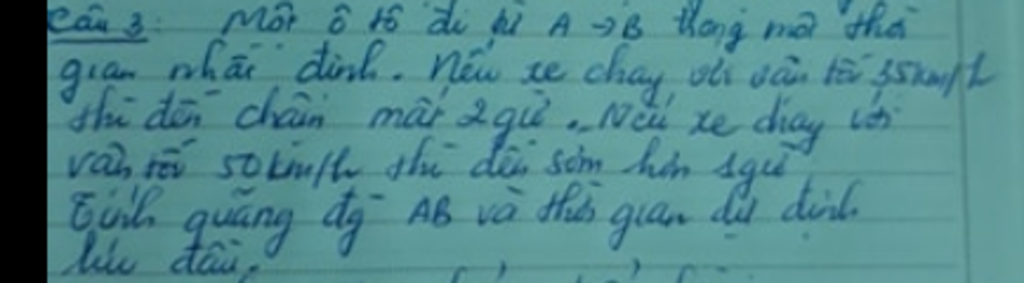 Câu 3: Một ô tô đi từ A → B trong một thời
gian nhất định. Nếu xe chạy với vận tốc 35km/h
thì đến chậm mất 2 giờ. Nếu xe chạy với
vận tốc 50km/h thì đến sớm hơn 1 giờ
Tính quãng đg AB và thời gian dự định
lúc đầu.